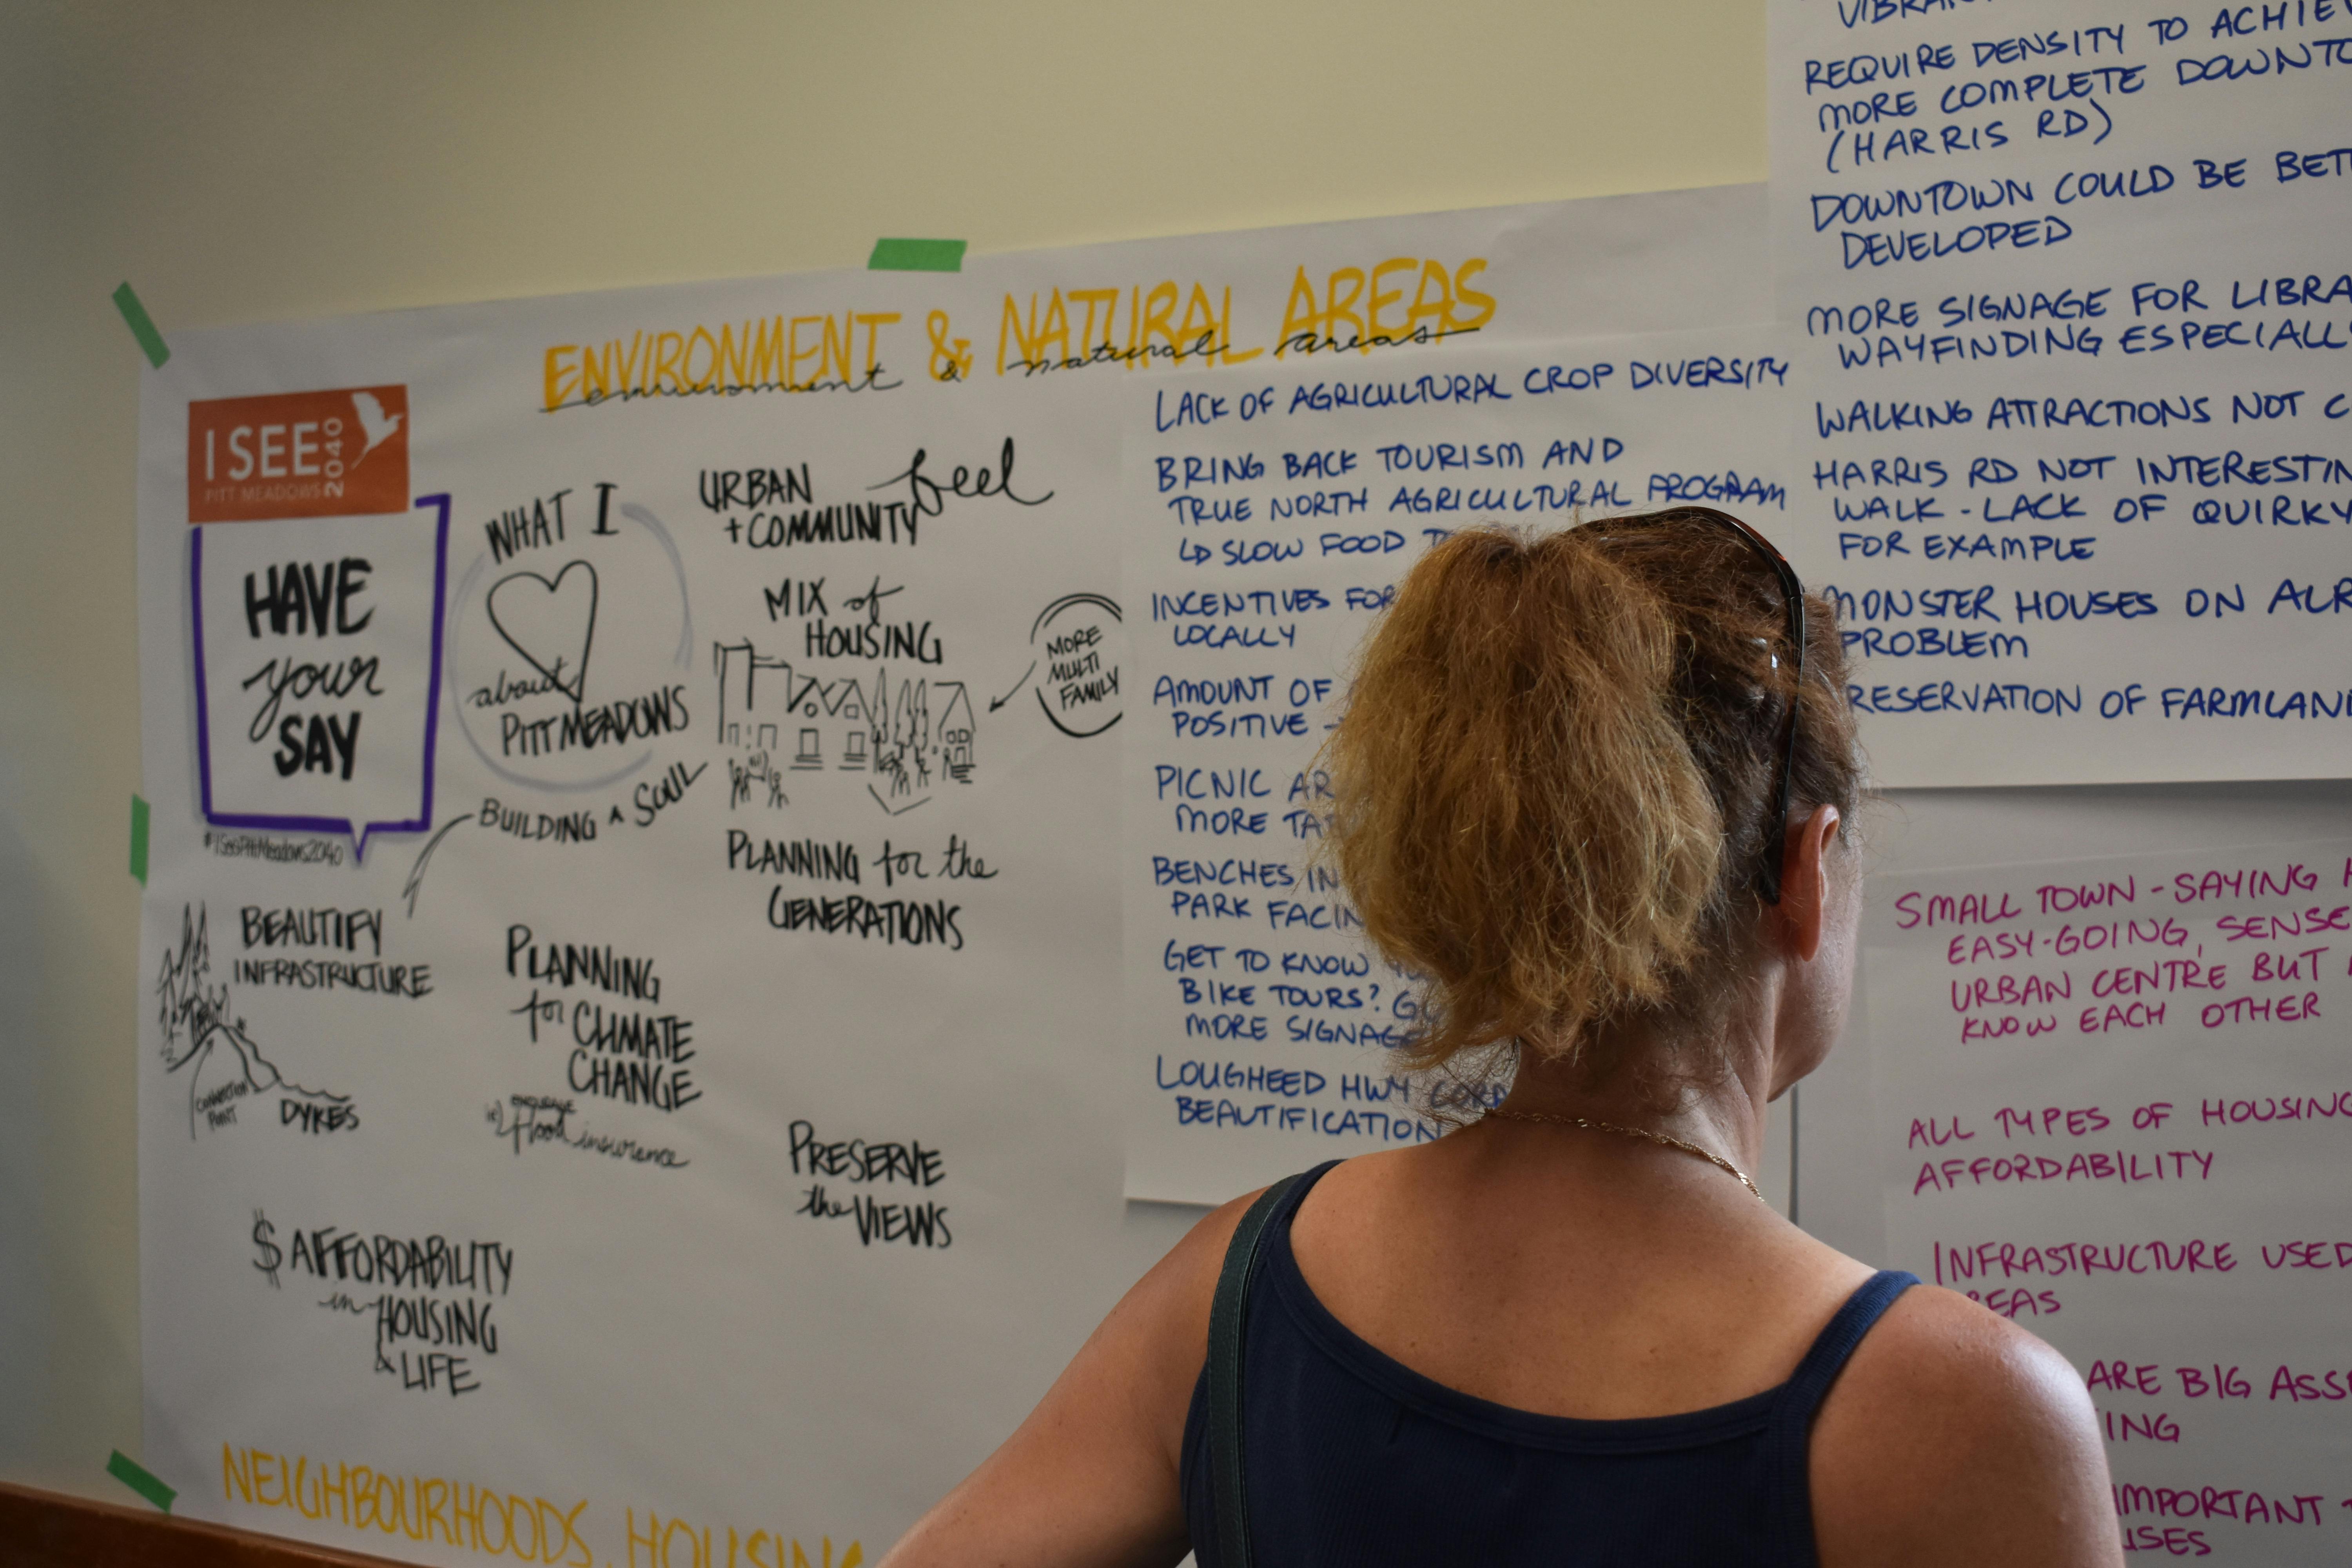 ENVIRONMENT & NATURAL AREAS
environment & natural areas
I SEE
2040
PITT MEADOWS
HAVE
your
SAY
#ISeePittMeadows2040
WHAT I
about
PITT MEADOWS
BUILDING A SOUL
URBAN
+ COMMUNITY
feel
MIX of
HOUSING
MORE
MULTI
FAMILY
PLANNING for the
GENERATIONS
BEAUTIFY
INFRASTRUCTURE
CONNECTION
POINT
DYKES
PLANNING
for CLIMATE
CHANGE
flood insurence
PRESERVE
the VIEWS
$ AFFORDABILITY
in HOUSING
& LIFE
NEIGHBOURHOODS, HOUSING
LACK OF AGRICULTURAL CROP DIVERSITY
BRING BACK TOURISM AND
TRUE NORTH AGRICULTURAL PROGRAM
SLOW FOOD
INCENTIVES FOR
LOCALLY
AMOUNT OF
POSITIVE -
PICNIC
MORE
BENCHES IN
PARK
GET TO KNOW
BIKE TOURS?
MORE SIGNAGE
LOUGHEED HWY
BEAUTIFICATION
REQUIRE DENSITY TO
MORE COMPLETE
(HARRIS RD)
DOWNTOWN COULD BE
DEVELOPED
MORE SIGNAGE FOR
WAYFINDING
WALKING ATTRACTIONS NOT
HARRIS RD NOT
WALK - LACK OF QUIRKY
FOR EXAMPLE
MONSTER HOUSES ON ALR
PROBLEM
RESERVATION OF
SMALL TOWN - SAYING
EASY-GOING, SENSE
URBAN CENTRE BUT
KNOW EACH OTHER
ALL TYPES OF HOUSING
AFFORDABILITY
INFRASTRUCTURE USED
REAS
ARE BIG
ING
IMPORTANT
USES